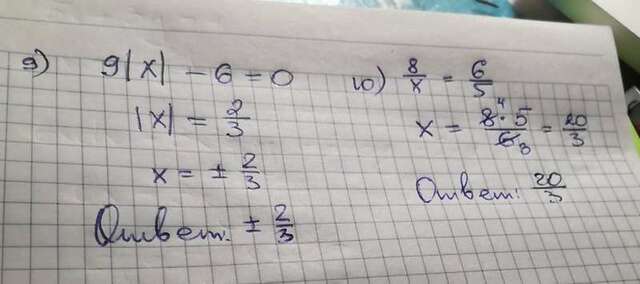 9) 9|x| - 6 = 0
|x| = 2/3
x = ± 2/3
Ответ: ± 2/3
10) 8/x = 6/5
x = 8⁴·5/6₃ = 20/3
Ответ: 20/3